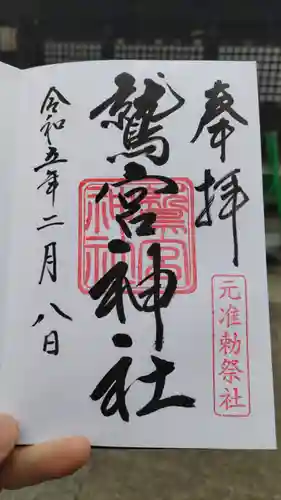 奉拝
元准勅祭社
鷲宮神社
鷲宮神社
令和五年二月八日